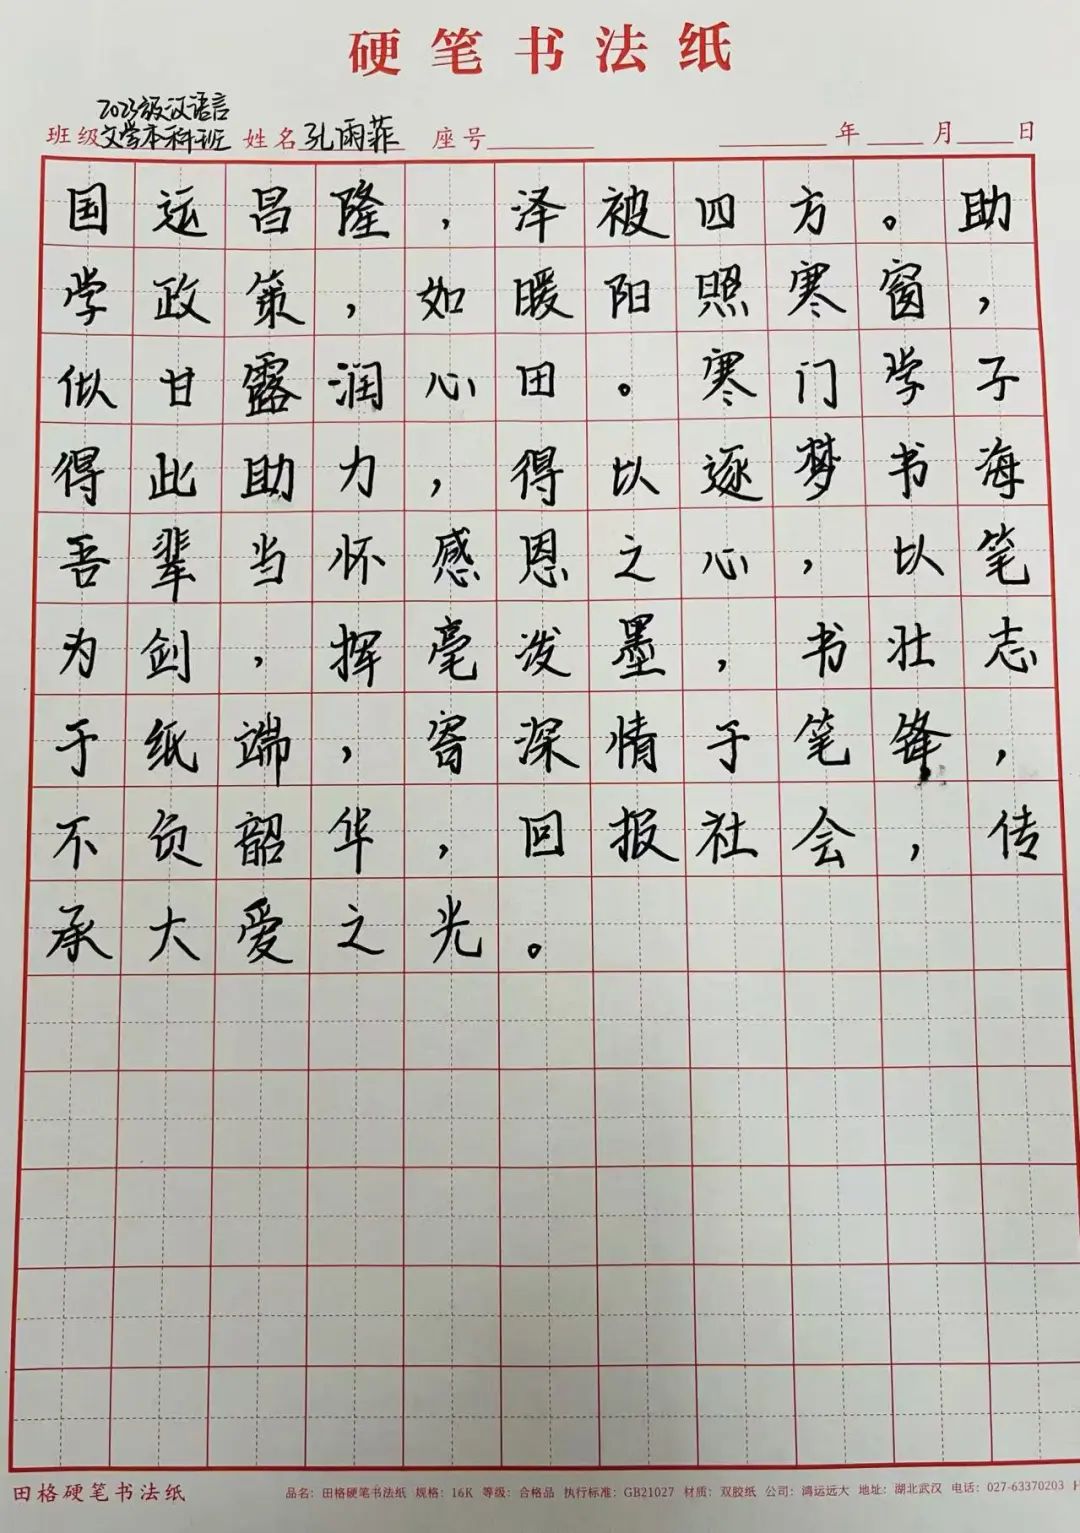 硬笔书法纸
2023级汉语言
班级 文学本科班 姓名 孔雨菲 座号 年 月 日
国运昌隆，泽被四方。助
学政策，如暖阳照寒窗，
似甘露润心田。寒门学子
得此助力，得以逐梦书海
吾辈当怀感恩之心，以笔
为剑，挥毫泼墨，书壮志
于纸端，寄深情于笔锋，
不负韶华，回报社会，传
承大爱之光。
田格硬笔书法纸 品名：田格硬笔书法纸 规格：16K 等级：合格品 执行标准：GB21027 材质：双胶纸 公司：鸿运远大 地址：湖北武汉 电话：027-63370203